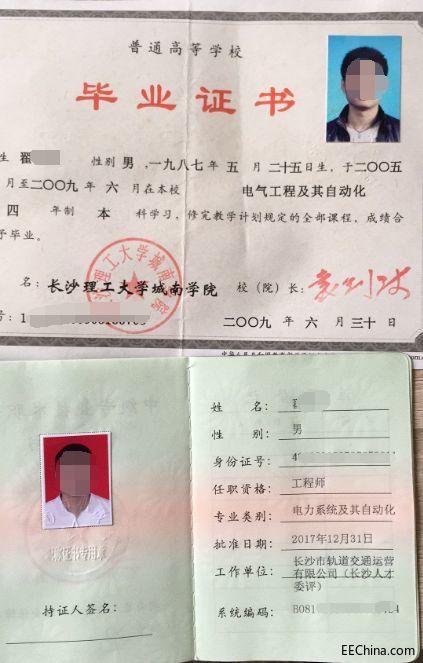 普通高等学校
毕业证书
生 翟 性别 男,一九八七年 五 月 二十五日生,于二〇〇五
月至二〇〇九 年 六 月在本校 电气工程及其自动化
四 年制 本 科学习,修完教学计划规定的全部课程,成绩合
予毕业。
名: 长沙理工大学城南学院 校(院)长:
二〇〇九 年 六 月 三十 日
姓 名:
性 别: 男
身份证号: 4
任职资格: 工程师
专业类别: 电力系统及其自动化
批准日期: 2017年12月31日
工作单位: 长沙市轨道交通运营
有限公司(长沙人才
委评)
系统编码: B081
持证人签名:
EEChina.com